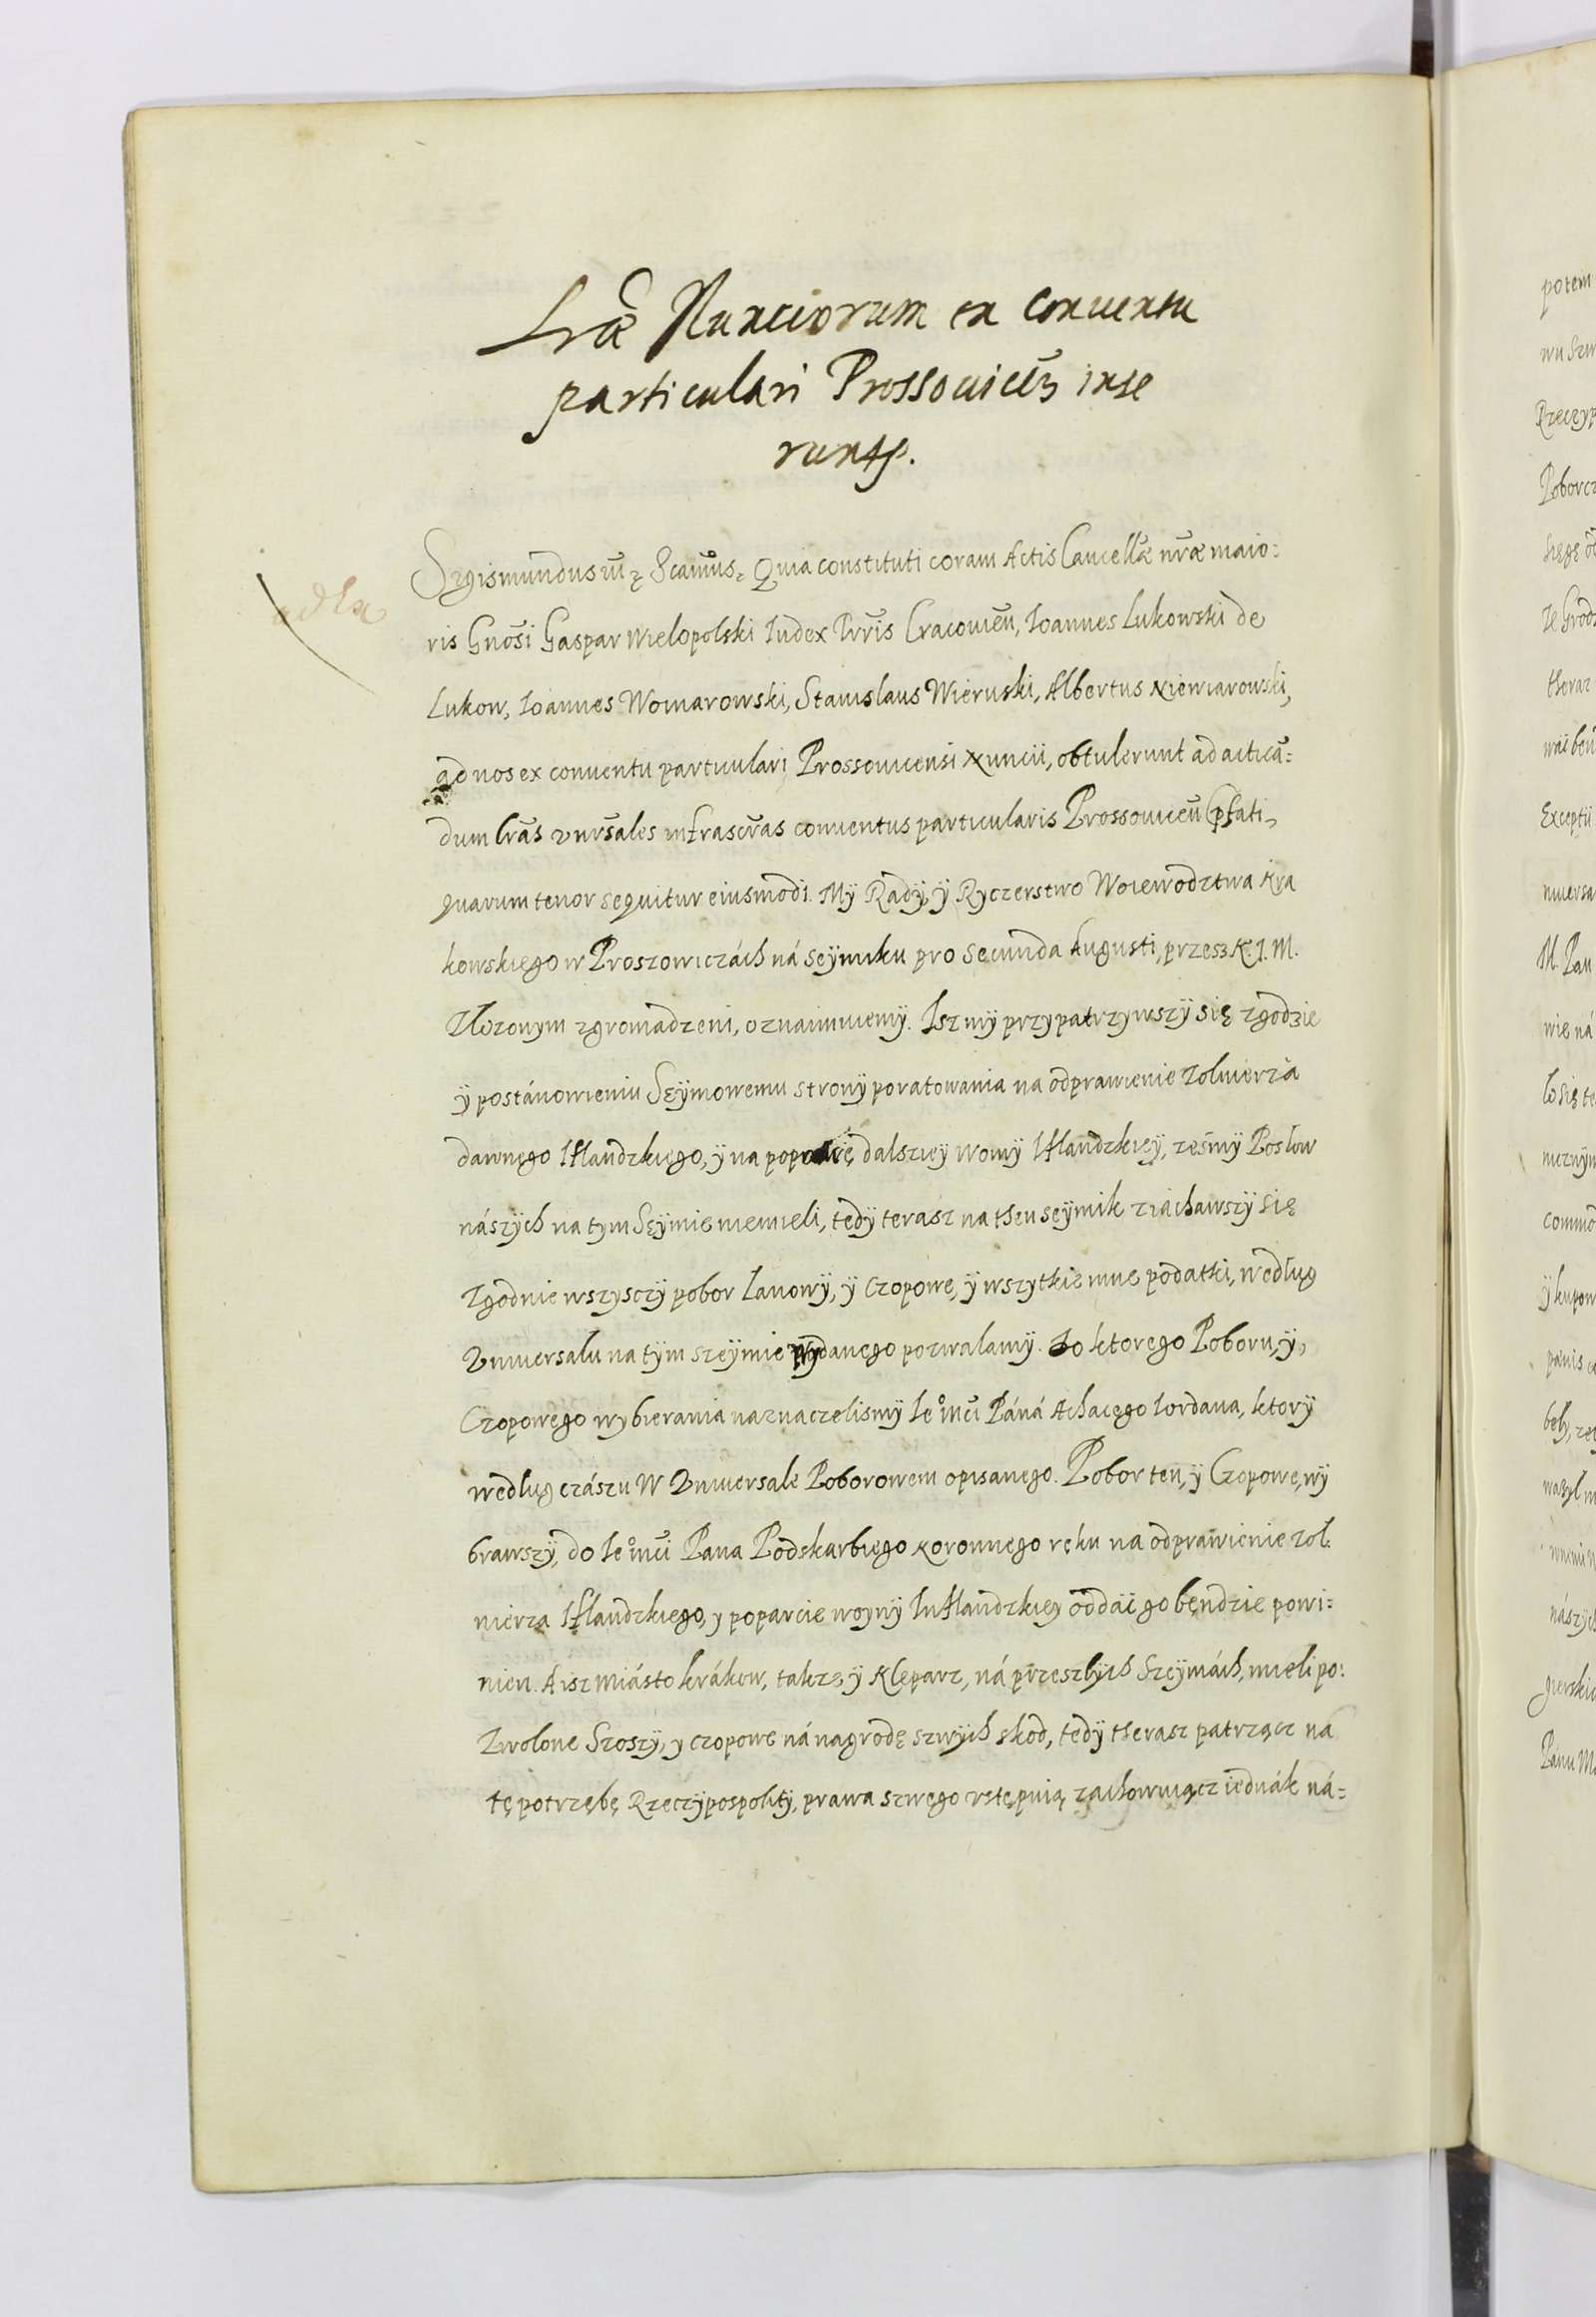 Lrae Nunciorum ex Conventu
particulari Prossouicen̄ inse
runtr.
Sigismundus III etc. Scimus, Quia constituti coram Actis Cancellae nr̄ae maio:
ris Gnōsi Gaspar Wielopolski Iudex Trr̄is Cracouien̄, Ioannes Lukowski de
Lukow, Ioannes Wornarowski, Stanislaus Wieruski, Albertus Niewiarowski,
ad nos ex conuentu particulari Prossouicensi Nuncii, obtulerunt ad acticā=
dum lrā̄s vnrsāles infrascrās conuentus particularis Prossouicen̄ pfati,
quarum tenor sequitur eiusmodi. Mÿ Radÿ, ÿ Ryczerstwo Woiewodztwa Kra
kowskiego w Proszowiczách ná seÿmiku pro secunda Augusti, przesz K. J. M.
Złozonym zgromadzeni, oznaimuiemÿ. Isz mÿ przypatrzywszÿ się zgodzie
ÿ postánowieniu Seÿmowemu stronÿ poratowania na odprawienie zolnierzá
dawnęgo Iflandzkięgo, ÿ na poprawę dalszeÿ woinÿ Iflandzkieÿ, zesmÿ Posłow
nászÿch na tym Sęÿmie niemieli, tedÿ terasz na then seÿmik ziáchawszÿ się
zgodnie wszÿsczÿ pobor łanowÿ, ÿ czopowe, ÿ wszytkie inne podatki, według
Vniuersału na tÿm szeÿmie wÿdanęgo pozwalamÿ. Do ktoręgo Poboru, ÿ,
Czopowęgo wybierania naznaczelismÿ Ie͛ mći Páná Achacęgo Iordana, ktorÿ
według czászu w Vniuersale Poborowem opisanęgo. Pobor ten, ÿ Czopowe, wÿ
brawszÿ, do Ie͛ mći Pana Podskarbięgo Koronnęgo ręku na odprawienie zoł:
nierza Iflandzkiego, y poparcie woynÿ Inflandzkiey oddać go będzie powi=
nien. A isz Miásto Krákow, takze, ÿ Klęparz, ná przeszłÿch Szeÿmách, mieli po:
zwolone Szoszÿ, y czopowe ná nagrodę szwÿch szkod, tedÿ therasz patrząć na
tę potrzębę Rzeczÿpospolitÿ, prawa szwęgo vstępuią, zachowuiącz iednák ná=